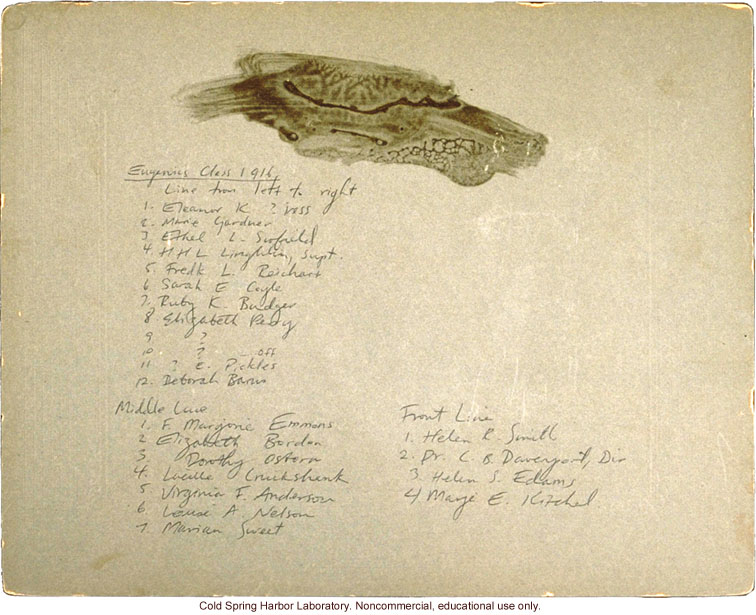 Eugenics Class 1916
Line from left to right
1. Eleanor K ?
2. Marie Gardner
3 Ethel L.
4. H H L Laughlin, Supt.
5. Fredk L. Reichart
6 Sarah E Coyle
7. Ruby K. Badger
8 Elizabeth Perry
9 ?
10 ? off
11 ? E. Pickles
12. Deborah Barus
Middle Line
1. F. Marjorie Emmons
2 Elizabeth Bordon
3 Dorothy Osborn
4. Lucille Cruikshank
5 Virginia F. Anderson
6 Louise A Nelson
7. Marian Sweet
Front Line
1. Helen R. Smill
2. Dr. C. B. Davenport, Dir
3. Helen S. Edams
4 E. Kitchel
Cold Spring Harbor Laboratory. Noncommercial, educational use only.